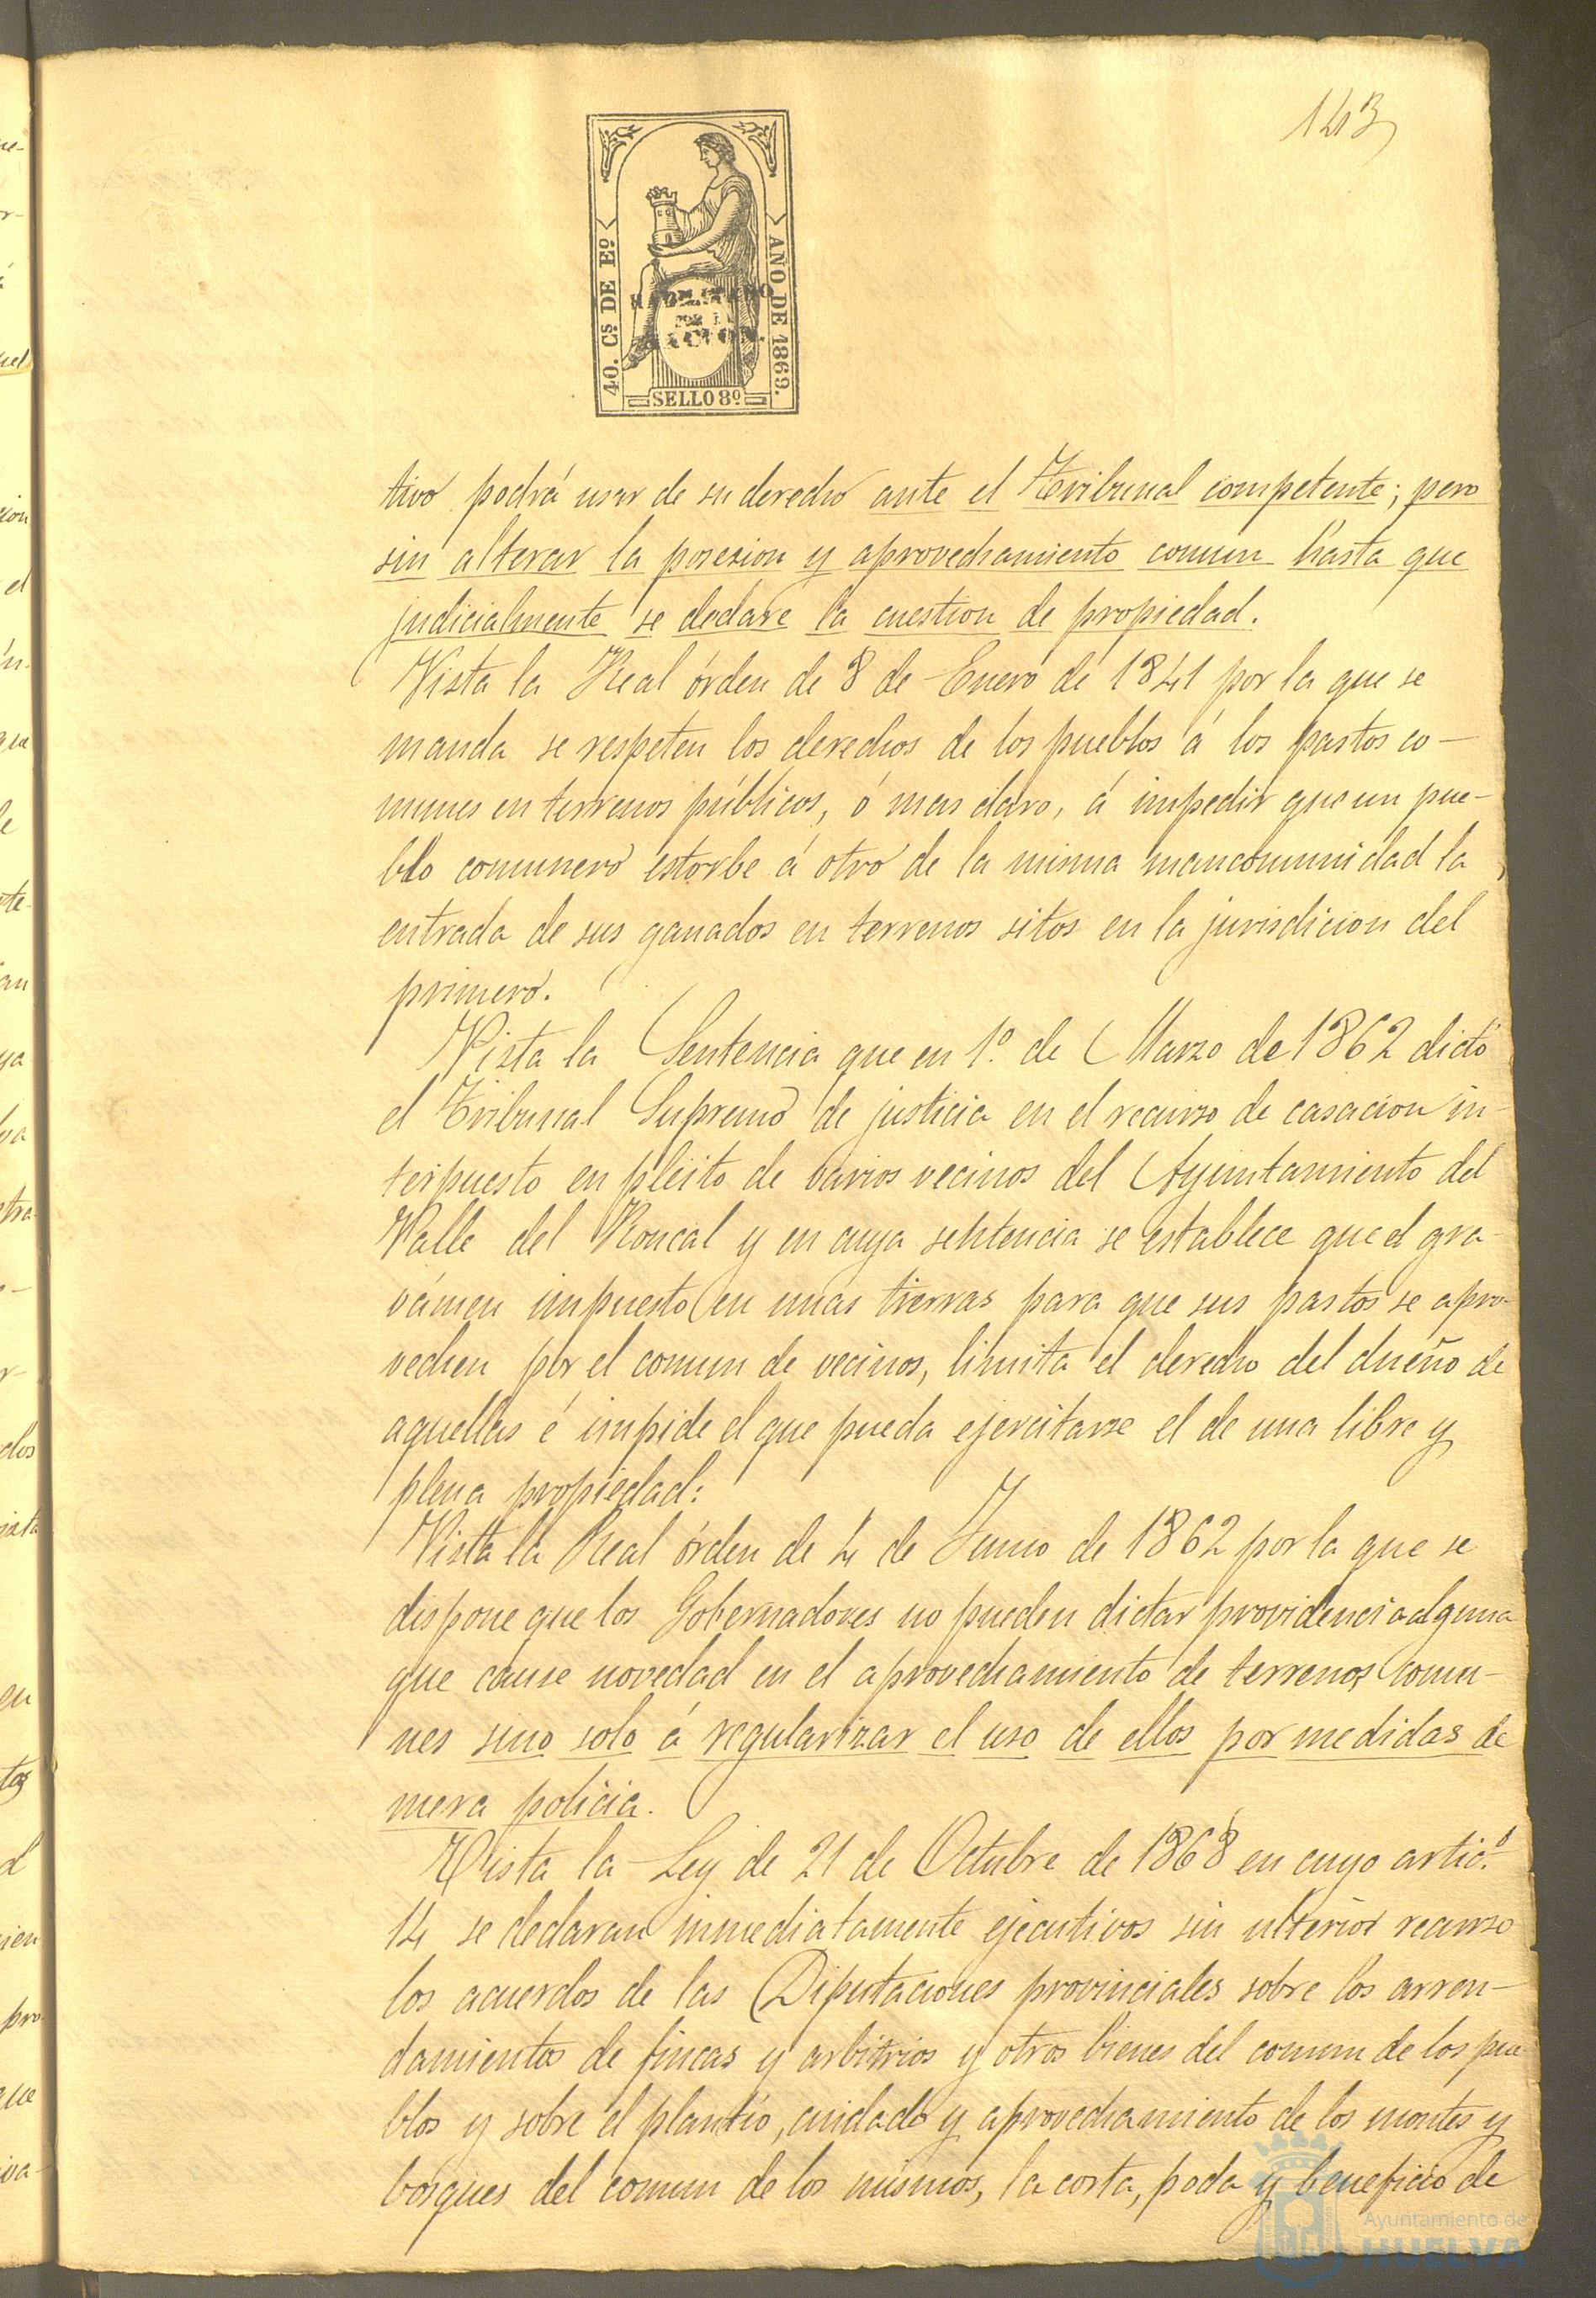 143
40. Cs DE Eº
AÑO DE 1869.
HABILITADO
POR LA
NACION.
SELLO 8º
tivo podrá usar de su derecho ante el Tribunal competente; pero
sin alterar la posesion y aprovechamiento comun hasta que
judicialmente se declare la cuestion de propiedad.
Vista la Real órden de 8 de Enero de 1841 por la que se
manda se respeten los derechos de los pueblos á los pastos co-
munes en terrenos públicos, ó mas claro, á impedir que un pue-
blo comunero estorbe á otro de la misma mancomunidad la
entrada de sus ganados en terrenos sitos en la jurisdicion del
primero.
Vista la Sentencia que en 1º. de Marzo de 1862 dictó
el Tribunal Supremo de justicia en el recurso de casacion in-
terpuesto en pleito de varios vecinos del Ayuntamiento del
Valle del Roncal y en cuya sentencia se establece que el gra-
vámen impuesto en unas tierras para que sus pastos se apro-
vechen por el comun de vecinos, limita el derecho del dueño de
aquellas é impide el que pueda ejercitarse el de una libre y
plena propiedad:
Vista la Real órden de 4 de Junio de 1862 por la que se
dispone que los Gobernadores no pueden dictar providencia alguna
que cause novedad en el aprovechamiento de terrenos comu-
nes sino solo á regularizar el uso de ellos por medidas de
mera policia.
Vista la Ley de 21 de Octubre de 1868 en cuyo artic.º
14 se declaran inmediatamente ejecutivos sin ulterior recurso
los acuerdos de las Diputaciones provinciales sobre los arren-
damientos de fincas y arbitrios y otros bienes del comun de los pue
blos y sobre el plantío, cuidado y aprovechamiento de los montes y
bosques del comun de los mismos, la corta, poda y beneficio de
Ayuntamiento de
HUELVA